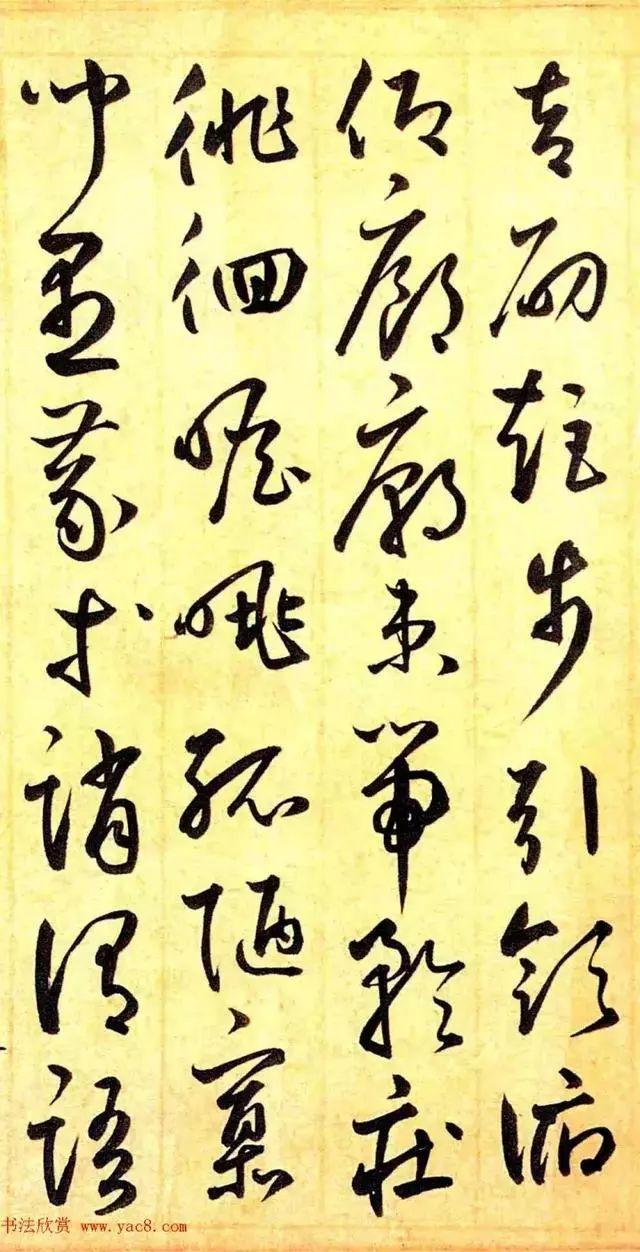 吉劭矩步引領俯
仰廊廟束帶矜莊
徘徊瞻眺孤陋寡
聞愚蒙等誚謂語
书法欣赏 www.yac8.com